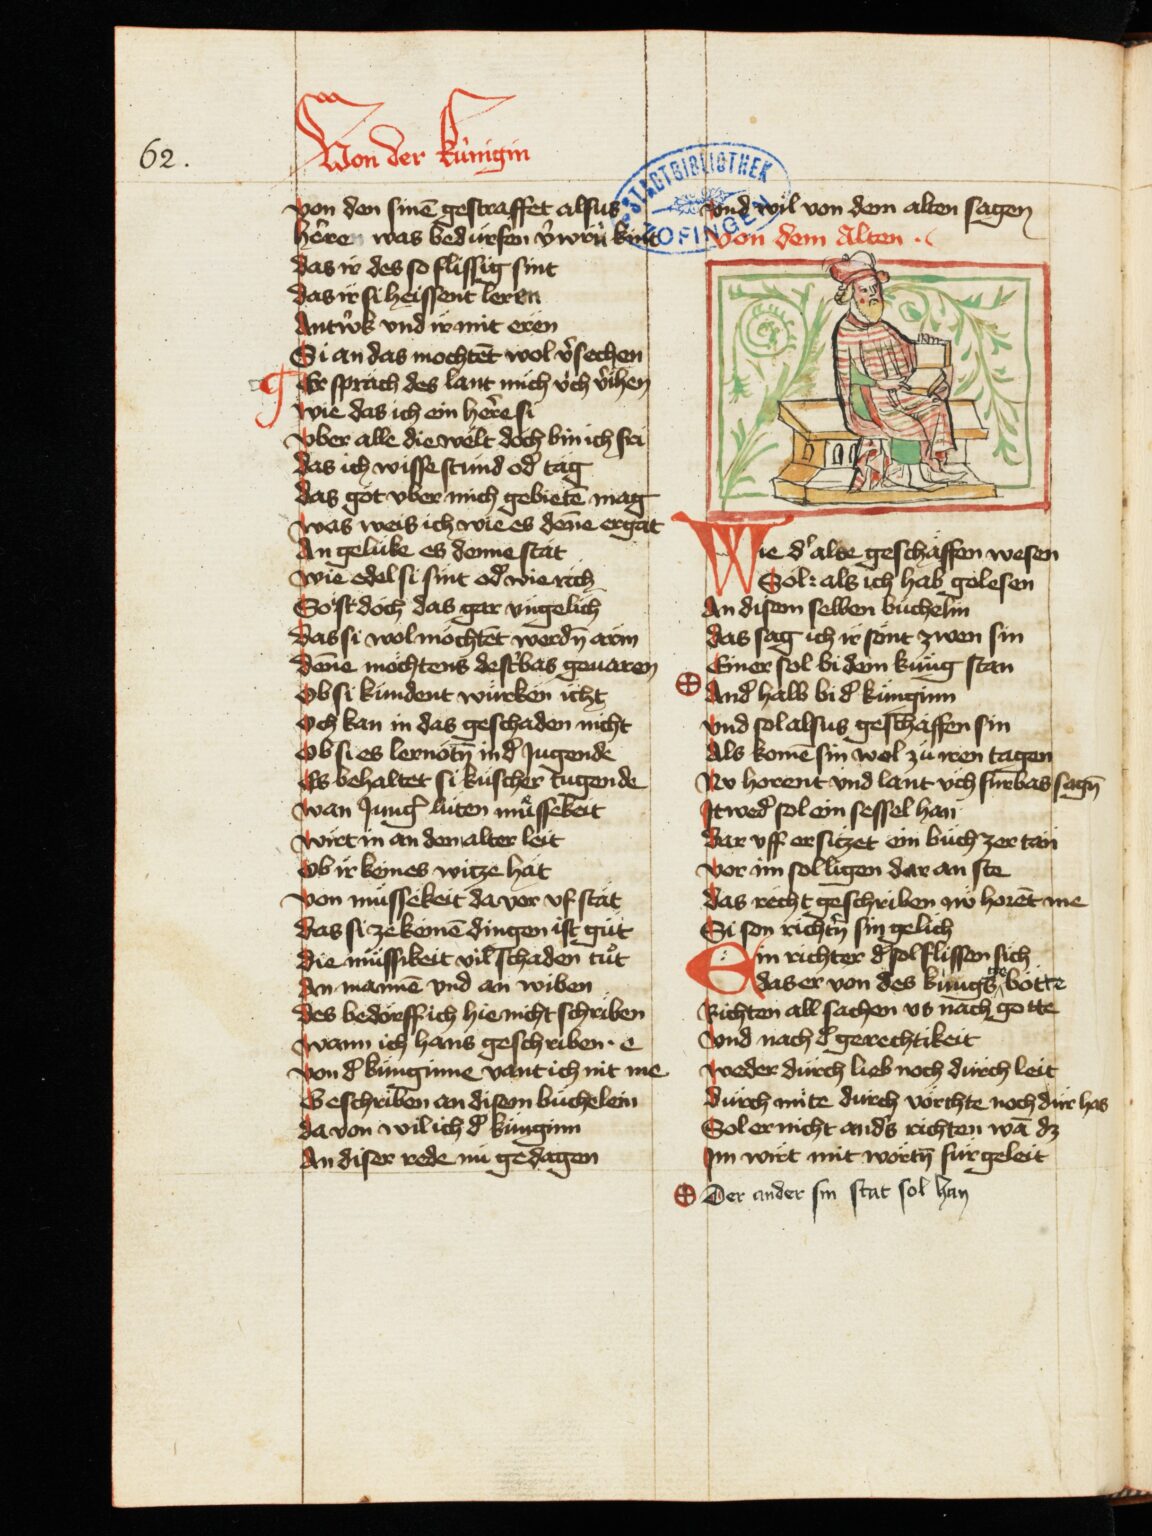 62.
Von der künigin
STADTBIBLIOTHEK
ZOFINGEN
von den sinē gestraffet alsus
herren was bedürfen kint
das ir des so flissig sint
das ir si heissent leren
Antwk vnd ir mit eren
Si an das mochtēt wol v̓sechen
Er sprach des lant mich v̓ch v̓ihen
wie das ich ein he᷑re si
vber alle die welt doch bin ich fri
das ich wisse stund od᷑ tag
das got vber mich gebietē mag
was weis ich wie es dēne ergat
An gelüke es denne stat
wie edel si sint od᷑ wie rich
So ist doch das gar vngelich
das si wol möchtēt werdn̄ arm
dēne möchtens dest᷑bas gevaren
Ob si kundent würken icht
Och kan in das geschaden nicht
Ob si es lernotn̄ in d᷑ Jugende
Es behaltet si küscher tugende
wan Jung᷑ lüten müssekeit
wirt in an dem alter leit
Ob ir keines witze hat
von müssekeit da vor vf stat
das si ze keinē dingen ist güt
die müssikeit vil schaden tůt
An mannē vnd an wiben
des bedörff ich hie nicht schriben
wann ich hans geschriben · e
von d᷑ künginne vant ich nit me
Geschriben an disem büchelein
da von wil ich d᷑ künginn
An diser rede nu gedagen
vnd wil von dem alten sagen
von dem Alten ·
Wie d᷑ alte geschaffen wesen
Söl: als ich hab gelesen
An disem selben büchelin
das sag ich ir sönt zwen sin
Einer sol bi dem küng stan
And᷑ halb bi d᷑ künginn
vnd sol alsus geschaffen sin
Als komē sin wol zu iren tagen
Nv horent vnd lant vch fürbas sagn̄
Itwed᷑ sol ein sessel han
dar vff er sitzet ein büch zer tan
vor im sol ligen dar an ste
das recht geschriben nv horēt me
Si son richtn̄ sin gelich
Ein richter d᷑ sol flissen sich
das er von des küngs botte
Richten all sachen vs nach gotte
vnd nach d᷑ gerechtikeit
weder durch lieb noch durch leit
durch mite durch vorchte noch dur has
Sol er nicht and᷑s richten wā dz
Im wirt mit wortn̄ für geleit
Der ander sin stat sol han